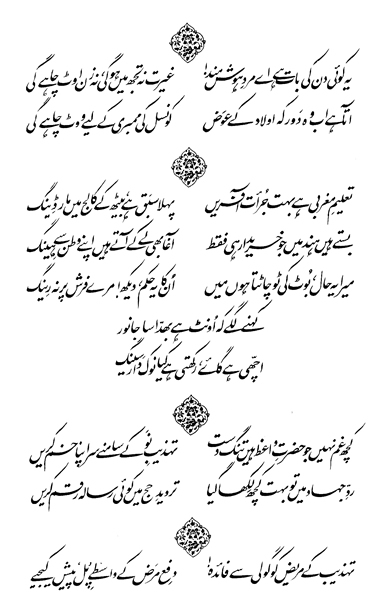 یہ کوئی دن کی بات ہے اے مردِ ہوش مند! غیرت نہ تجھ میں ہو گی نہ زن اوٹ چاہے گی
آتا ہے اب وہ دَور کہ اولاد کے عوض کونسل کی ممبری کے لیے ووٹ چاہے گی
تعلیمِ مغربی ہے بہت جُرأت آفریں پہلا سبق ہے، بیٹھ کے کالج میں مار ڈینگ
بستے ہیں ہند میں جو خریدار ہی فقط آغا بھی لے کے آتے ہیں اپنے وطن سے ہینگ
میرا یہ حال، بُوٹ کی ٹو چاٹتا ہوں میں اُن کا یہ حکم، دیکھ! مرے فرش پر نہ رِینگ
کہنے لگے کہ اُونٹ ہے بھدّا سا جانور
اچھی ہے گائے، رکھتی ہے کیا نوک دار سِینگ
کچھ غم نہیں جو حضرتِ واعظ ہیں تنگ دست تہذیبِ نَو کے سامنے سر اپنا خم کریں
ردِّ جہاد میں تو بہت کچھ لکھا گیا تردیدِ حج میں کوئی رسالہ رقم کریں
تہذیب کے مریض کو گولی سے فائدہ! دفعِ مرض کے واسطے پِل پیش کیجیے